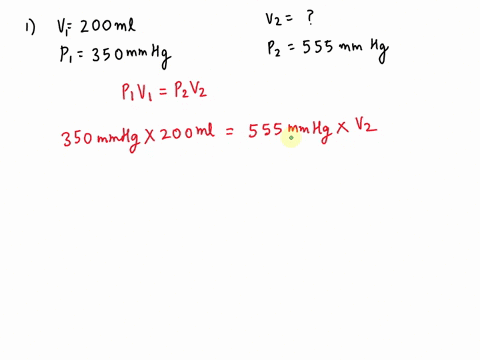 1) V₁= 200ml V₂ = ?
P₁ = 350mmHg P₂ = 555 mm Hg
P₁V₁ = P₂V₂
350mmHg × 200ml = 555mmHg × V₂